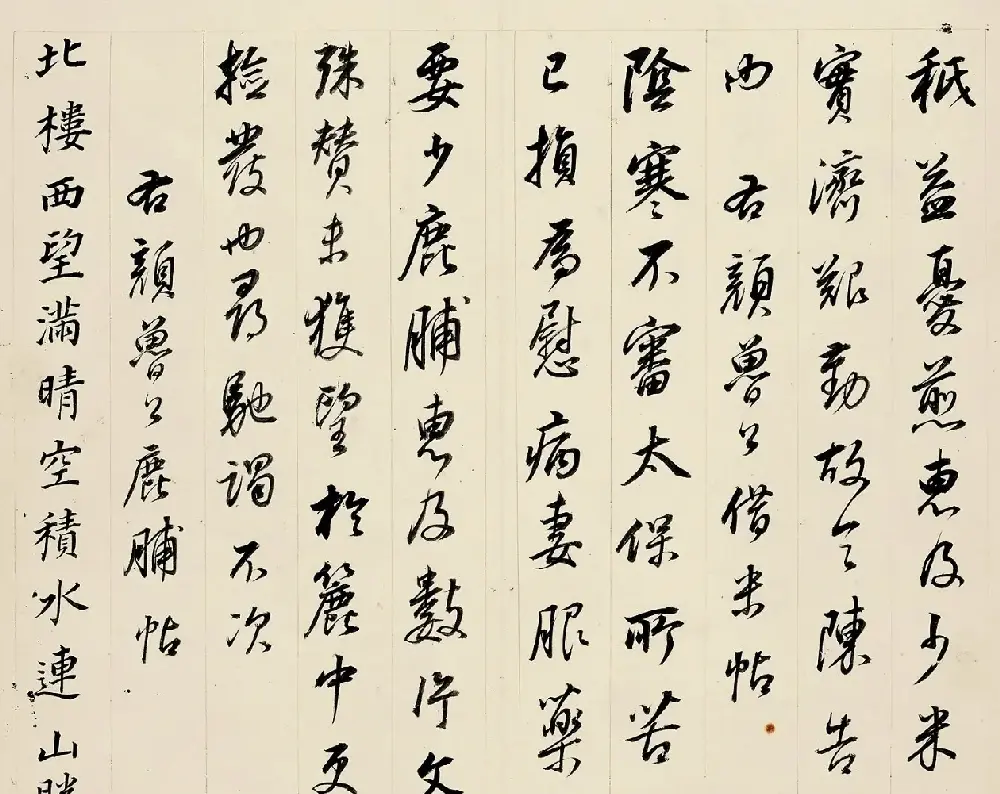 秪益憂煎惠及少米
實濟艱勤故令陳告
内右顏魯公借米帖
陰寒不審太保所苦
已損爲慰病妻服藥
要少鹿脯惠及數片文
殊贊未獲望於簏中更
撿發也尋馳謁不次
右顏魯公鹿脯帖
北樓西望滿晴空積水連山